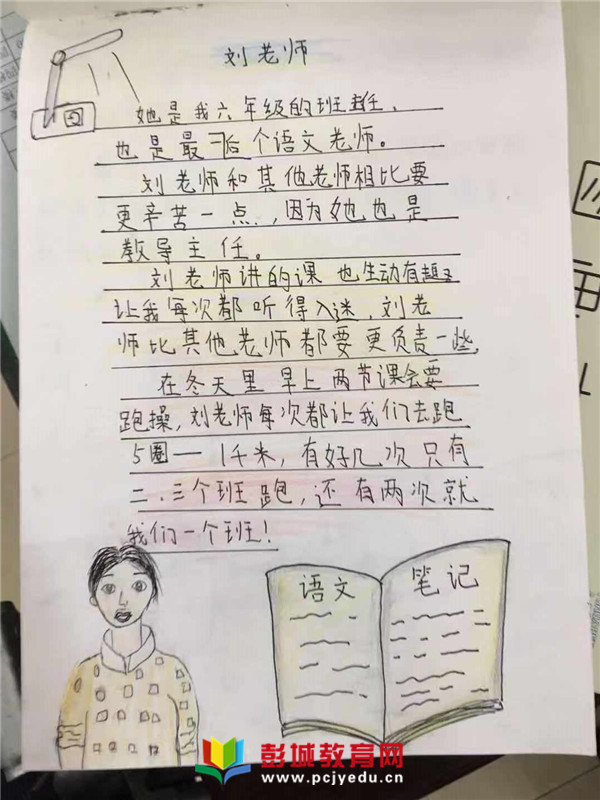 刘老师
她是我六年级的班主任、
也是最后一个语文老师。
刘老师和其他老师相比要
更辛苦一点,因为她也是
教导主任。
刘老师讲的课也生动有趣
让我每次都听得入迷,刘老
师比其他老师都要更负责一些,
在冬天里早上两节课会要
跑操,刘老师每次都让我们去跑
5圈—1千米,有好几次只有
二、三个班跑,还有两次就
我们一个班!
语文
笔记
彭城教育网
www.pcjyedu.cn